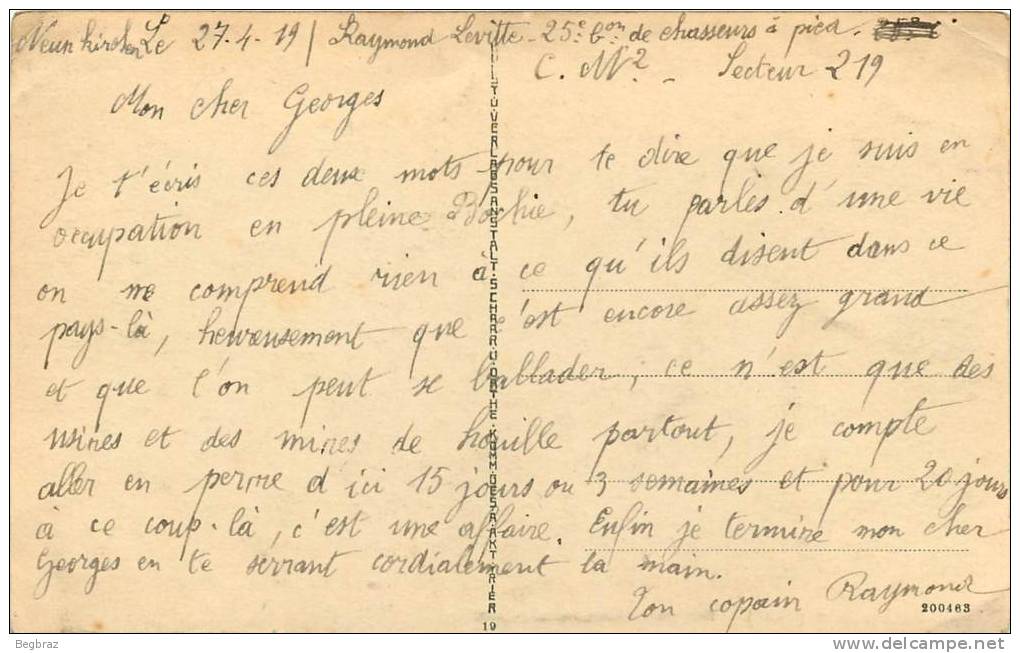 Neunkirchen Le 27-4-19 / Raymond Levitte - 25e bon de chasseurs à pied.
C. M2 - Secteur 219
Mon cher Georges
Je t'écris ces deux mots pour te dire que je suis en
occupation en pleine Bochie, tu parles d'une vie
on ne comprend rien à ce qu'ils disent dans ce
pays-là, heureusement que c'est encore assez grand
et que l'on peut se ballader, ce n'est que des
usines et des mines de houille partout, je compte
aller en perme d'ici 15 jours ou 3 semaines et pour 20 jours
à ce coup-là, c'est une affaire. Enfin je termine mon cher
Georges en te serrant cordialement la main.
Ton copain Raymond
U.TU.VERLAGSANSTALT.SCHAAR.U.DATHE.KOMM.GES.A.AKT.TRIER
19
200463
Begbraz
www.delcampe.net